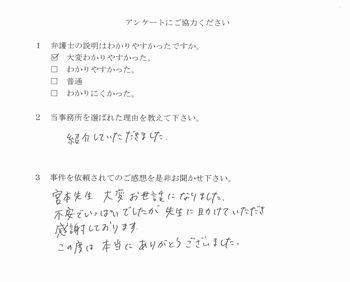 アンケートにご協力ください
1 弁護士の説明はわかりやすかったですか。
☑ 大変わかりやすかった。
□ わかりやすかった。
□ 普通
□ わかりにくかった。
2 当事務所を選ばれた理由を教えて下さい。
紹介していただきました。
3 事件を依頼されてのご感想を是非お聞かせ下さい。
宮本先生 大変お世話になりました。
不安でいっぱいでしたが 先生に助けていただき
感謝しております。
この度は 本当に ありがとうございました。